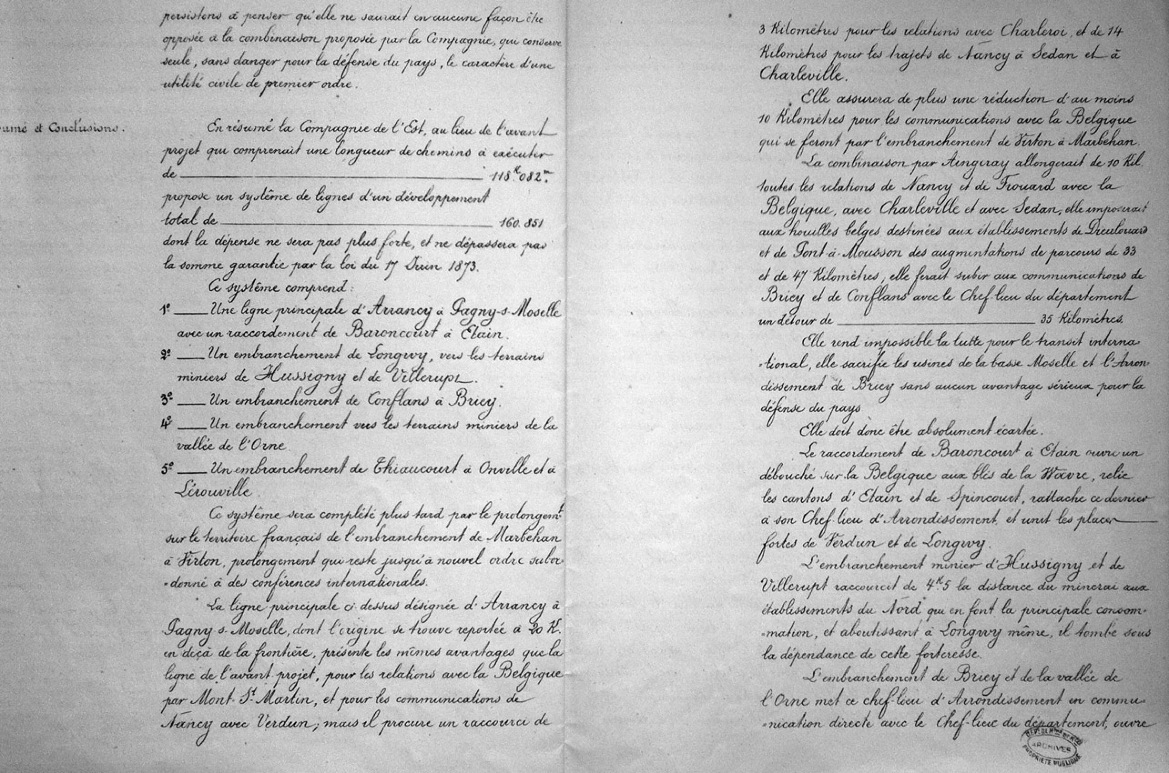 persistons à penser qu'elle ne saurait en aucune façon être
opposée à la combinaison proposée par la Compagnie, qui conserve
seule, sans danger pour la défense du pays, le caractère d'une
utilité civile de premier ordre.
umé et Conclusions.
En résumé la Compagnie de l'Est, au lieu de l'avant
projet qui comprenait une longueur de chemins à exécuter
de 118k.082m.
propose un système de lignes d'un développement
total de 160.851
dont la dépense ne sera pas plus forte, et ne dépassera pas
la somme garantie par la loi du 17 Juin 1873.
Ce système comprend:
1º Une ligne principale d'Arrancy à Pagny-s-Moselle
avec un raccordement de Baroncourt à Etain.
2º Un embranchement de Longwy, vers les terrains
miniers de Hussigny et de Villerupt.
3º Un embranchement de Conflans à Briey.
4º Un embranchement vers les terrains miniers de la
vallée de l'Orne
5º Un embranchement de Thiaucourt à Onville et à
Lérouville
Ce système sera complété plus tard par le prolongemt
sur le territoire français de l'embranchement de Marbehan
à Virton, prolongement qui reste jusqu'à nouvel ordre subor
=donné à des conférences internationales.
La ligne principale ci dessus désignée d'Arrancy à
Pagny s-Moselle, dont l'origine se trouve reportée à 20 K.
en deçà de la frontière, présente les mêmes avantages que la
ligne de l'avant projet, pour les relations avec la Belgique
par Mont St Martin, et pour les communications de
Nancy avec Verdun; mais il procure un raccourci de
3 Kilomètres pour les relations avec Charleroi, et de 14
Kilomètres pour les trajets de Nancy à Sedan et à
Charleville.
Elle assurera de plus une réduction d'au moins
10 Kilomètres pour les communications avec la Belgique
qui se feront par l'embranchement de Virton à Marbehan.
La combinaison par Aingeray allongerait de 10 Kil.
toutes les relations de Nancy et de Frouard avec la
Belgique, avec Charleville et avec Sedan, elle imposerait
aux houilles belges destinées aux établissements de Dieulouard
et de Pont-à-Mousson des augmentations de parcours de 33
et de 47 Kilomètres, elle ferait subir aux communications de
Briey et de Conflans avec le Chef-lieu du département
un détour de 35 Kilomètres.
Elle rend impossible la lutte pour le transit interna
=tional, elle sacrifie les usines de la basse Moselle et l'Arron-
dissement de Briey sans aucun avantage sérieux pour la
défense du pays
Elle doit donc être absolument écartée.
Le raccordement de Baroncourt à Etain ouvre un
débouché sur la Belgique aux blés de la Wavre, relie
les cantons d'Etain et de Spincourt, rattache ce dernier
à son Chef-lieu d'Arrondissement, et unit les places
fortes de Verdun et de Longwy.
L'embranchement minier d'Hussigny et de
Villerupt raccourcit de 4k5 la distance du minerai aux
établissements du Nord qui en font la principale consom=
=mation, et aboutissant à Longwy même, il tombe sous
la dépendance de cette forteresse.
L'embranchement de Briey et de la vallée de
l'Orne met ce chef-lieu d'Arrondissement en commu=
=nication directe avec le Chef-lieu du département, ouvre
ARCHIVES
PROPRIÉTÉ PUBLIQUE